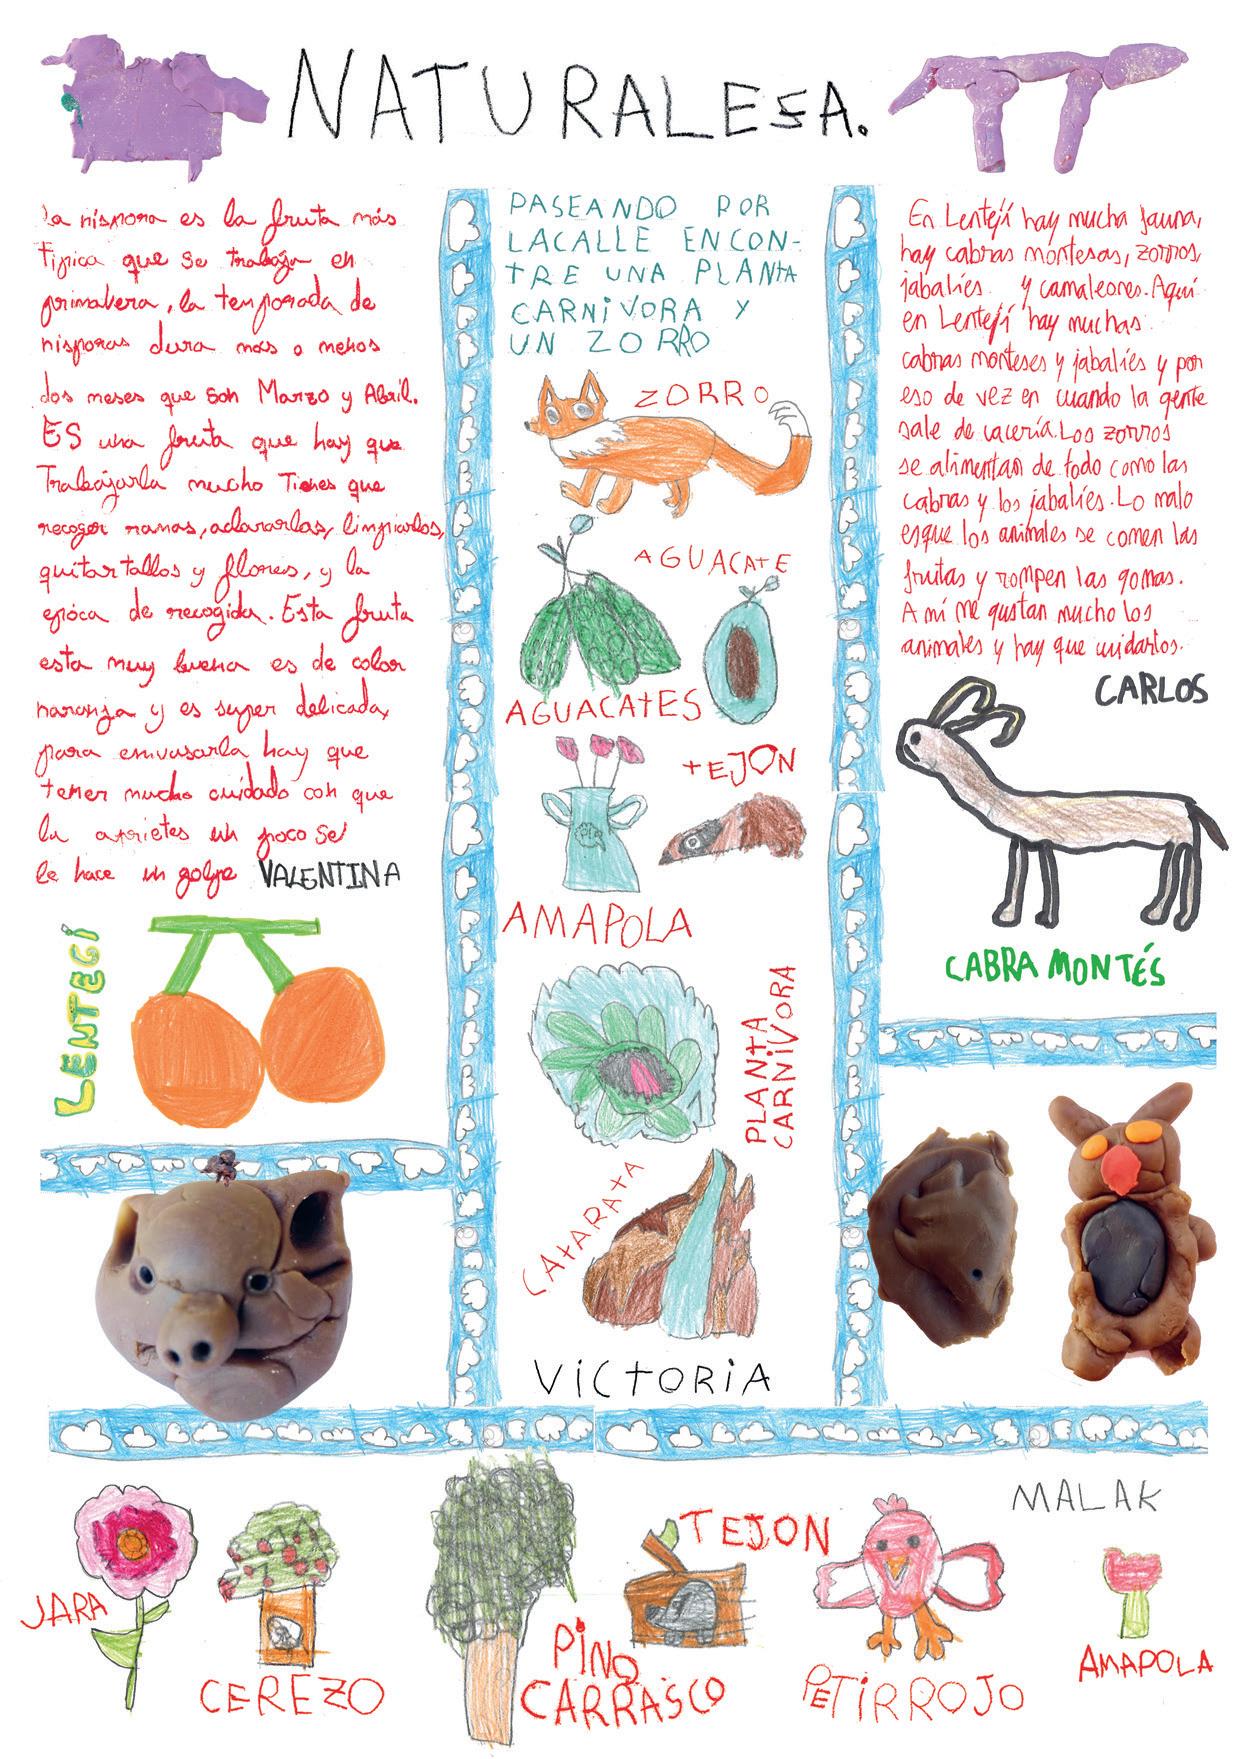 NATURALESA.
La níspora es la fruta más
típica que se trabaja en
primavera, la temporada de
nísporas dura más o menos
dos meses que son Marzo y Abril.
ES una fruta que hay que
Trabajarla mucho Tienes que
recoger ramas, aclararlas, limpiarlos,
quitar tallos y flores, y la
epóca de recogida. Esta fruta
esta muy buena es de color
naranja y es super delicada,
para envasarla hay que
tener mucho cuidado con que
la aprietes un poco se
le hace un golpe VALENTINA
LENTEGÍ
PASEANDO POR
LACALLE ENCON-
TRE UNA PLANTA
CARNIVORA Y
UN ZORRO
ZORRO
AGUACATE
AGUACATES
TEJON
AMAPOLA
PLANTA
CARNIVORA
CATARATA
VICTORIA
En Lentejí hay mucha fauna,
hay cabras montesas, zorros,
jabalíes y camaleones. Aquí
en Lentejí hay muchas
cabras monteses y jabalíes y por
eso de vez en cuando la gente
sale de cacería. Los zorros
se alimentan de todo como las
cabras y los jabalíes. Lo malo
esque los animales se comen las
frutas y rompen las gomas.
A mí me gustan mucho los
animales y hay que cuidarlos.
CARLOS
CABRA MONTÉS
MALAK
JARA
CEREZO
PINO
CARRASCO
TEJON
PETIRROJO
AMAPOLA